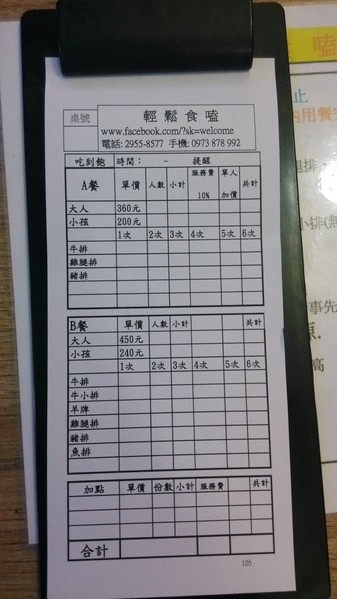 桌號 輕鬆食嗑
www.facebook.com/?sk=welcome
電話: 2955-8577 手機: 0973 878 992
吃到飽 時間: ~ 提醒
A餐 單價 人數 小計 服務費 10% 單人加價 共計
大人 360元
小孩 200元
1次 2次 3次 4次 5次 6次
牛排
雞腿排
豬排
B餐 單價 人數 小計 共計
大人 450元
小孩 240元
1次 2次 3次 4次 5次 6次
牛排
牛小排
羊牌
雞腿排
豬排
魚排
加點 單價 份數 小計 服務費 共計
合計
105
嗑
止
內用餐
腿排
小排(無
事先
原.
高